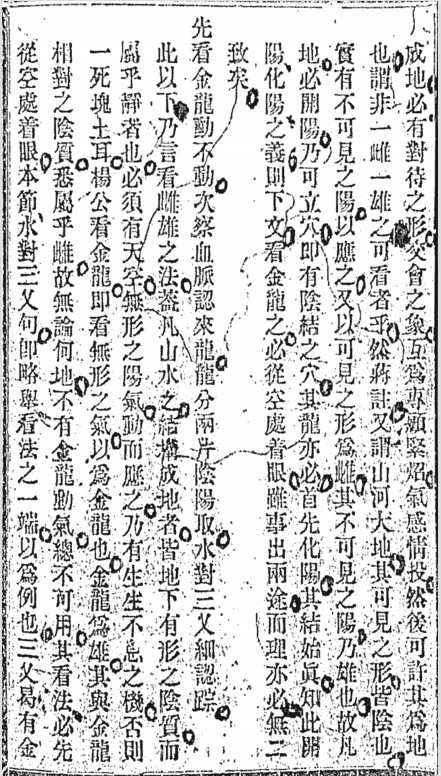 成地必有對待之形交會之象互爲專顧緊炤氣感情投然後可許其爲地
也謂非一雌一雄之可看者乎然蔣註又謂山河大地其可見之形皆陰也
實有不可見之陽以應之又以可見之形爲雌其不可見之陽乃雄也故凡
地必開陽乃可立穴即有陰結之穴其龍亦必首先化陽其結始眞知此開
陽化陽之義則下文看金龍之必從空處着眼雖事出兩途而理亦必無二
致矣
先看金龍動不動次察血脈認來龍龍分兩片陰陽取水對三叉細認踪
此以下乃言看雌雄之法蓋凡山水之結構成地者皆地下有形之陰質而
屬乎靜者也必須有天空無形之陽氣動而應之乃有生生不息之機否則
一死塊土耳楊公看金龍即看無形之氣以爲金龍也金龍爲雄其與金龍
相對之陰質悉屬乎雌故無論何地不有金龍動氣總不可用其看法必先
從空處着眼本節水對三叉句卽略舉看法之一端以爲例也三叉曷有金